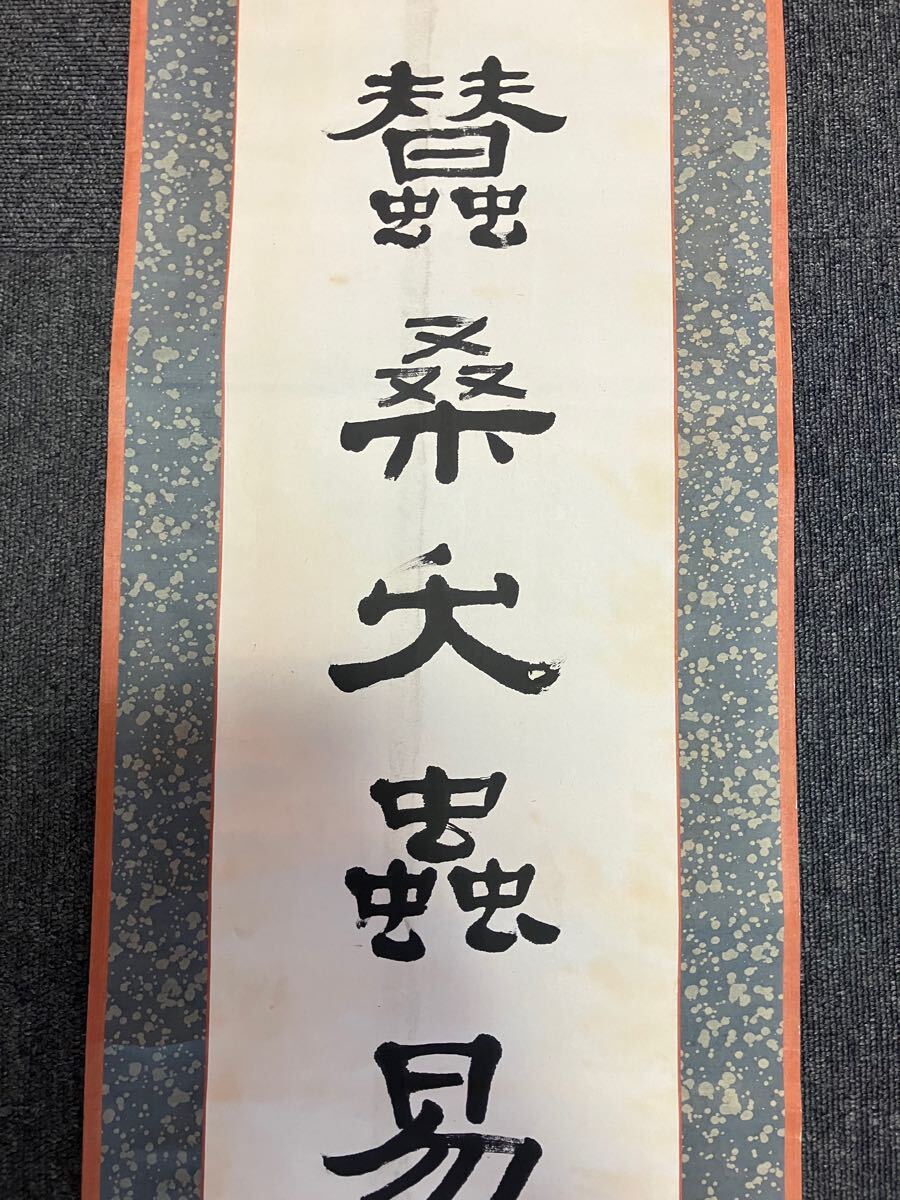 蠶桑蟲易